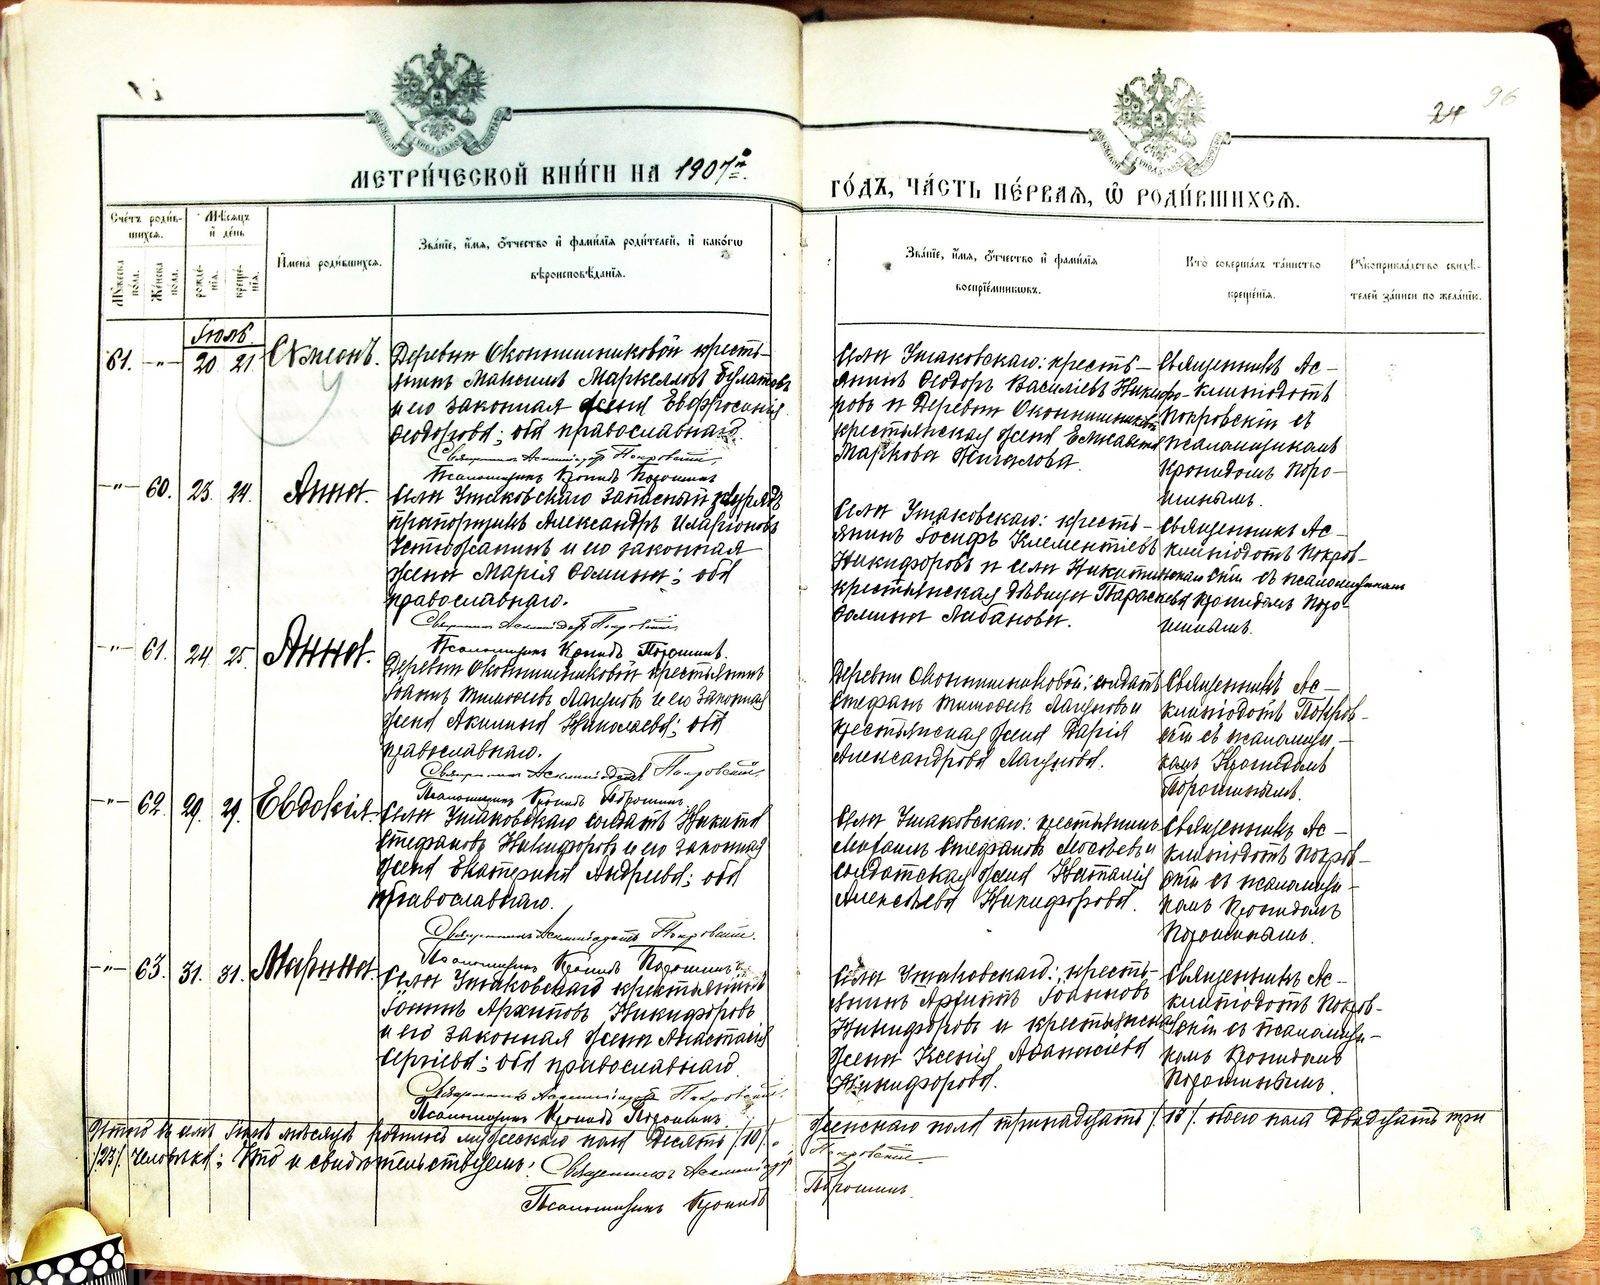 24
96
МЕТРИ́ЧЕСКОЙ КНИ́ГИ НА 1907й
ГО́ДЪ, ЧА́СТЬ ПЕ́РВАЯ, Ѽ РОДИ́ВШИХСЯ.
Сче́тъ роди́в-
шихся.
Му́жеска по́ла.
Же́нска по́ла.
Мѣ́сяцъ
и҆ де́нь
рожде́-
нїя.
креще́-
нїя.
И҆мена̀ роди́вшихся.
Зва́нїе, и҆́мя, ѻ҆́тчество и҆ фами́лїя роди́телей, и҆ како́гѡ
вѣроисповѣ́данїя.
Зва́нїе, и҆́мя, ѻ҆́тчество и҆ фами́лїя
воспрїе́мникѡвъ.
Кто̀ соверша́лъ та́инство
креще́нїя.
Рꙋкоприкла́дство свидѣ́-
телей за́писи по жела́нїю.
Іюль.
61. -"- 20 21. Сѵмеонъ.
Деревни Оконишниковой кресть-
янинъ Максимъ Маркелловъ Булатовъ
и его законная жена Евфросинія
Ѳеодорова; оба православнаго.
Священникъ Асклипіодотъ Покровскій.
Псаломщикъ Кронидъ Порошинъ.
Села Ушаковскаго: кресть-
янинъ Ѳеодоръ Василіевъ Никифо-
ровъ и Деревни Оконишниковой
крестьянская жена Елисавета
Маркова Жигалова.
Священникъ Ас-
клипіодотъ
Покровскій съ
псаломщикомъ
Кронидомъ Поро-
шинымъ.
-"- 60. 23. 24. Анна.
Села Ушаковскаго запасный зауряд
прапорщикъ Александръ Иларіоновъ
Устюжанинъ и его законная
жена Марія Ѳомина; оба
православнаго.
Священникъ Асклипіодотъ Покровскій.
Псаломщикъ Кронидъ Порошинъ.
Села Ушаковскаго: кресть-
янинъ Іосифъ Клементіевъ
Никифоровъ и села Никитинскаго
крестьянская дѣвица Параскева
Ѳомина Лабанова.
Священникъ Ас-
клипіодотъ Покров-
скій съ псаломщикомъ
Кронидомъ Поро-
шинымъ.
-"- 61. 24. 25. Анна.
Деревни Оконишниковой крестьянинъ
Іоаннъ Тимоѳеевъ Лагуновъ и его законная
жена Акилина Николаева; оба
православнаго.
Священникъ Асклипіодотъ Покровскій.
Псаломщикъ Кронидъ Порошинъ.
Деревни Оконишниковой: солдатъ
Стефанъ Тимоѳеевъ Лагуновъ и
крестьянская жена Дарія
Александрова Лагунова.
Священникъ Ас-
клипіодотъ Покров-
скій съ псаломщи-
комъ Кронидомъ
Порошинымъ.
-"- 62. 29. 29. Евдокія.
Села Ушаковскаго солдатъ Никита
Стефановъ Никифоровъ и его законная
жена Екатерина Андреева; оба
православнаго.
Священникъ Асклипіодотъ Покровскій.
Псаломщикъ Кронидъ Порошинъ.
Села Ушаковскаго: крестьянинъ
Михаилъ Стефановъ Мосѣевъ и
солдатская жена Наталія
Алексѣева Никифорова.
Священникъ Ас-
клипіодотъ Покров-
скій съ псаломщи-
комъ Кронидомъ
Порошинымъ.
-"- 63. 31. 31. Марина.
Села Ушаковскаго крестьянинъ
Іоаннъ Архиповъ Никифоровъ
и его законная жена Анастасія
Сергіева; оба православнаго.
Священникъ Асклипіодотъ Покровскій.
Псаломщикъ Кронидъ Порошинъ.
Села Ушаковскаго: кресть-
янинъ Архиппъ Іоанновъ
Никифоровъ и крестьянская
жена Ксенія Аѳанасіева
Никифорова.
Священникъ Ас-
клипіодотъ Покров-
скій съ псаломщи-
комъ Кронидомъ
Порошинымъ.
Итого въ іюлѣ мѣсяцѣ родилось мужескаго пола десять /10/,
женскаго пола тринадцать /13/. обоего пола двадцать три
/23/. человѣка; Что и свидѣтельствуемъ: Священникъ Асклипіодотъ
Покровскій
Псаломщикъ Кронидъ
Порошинъ.